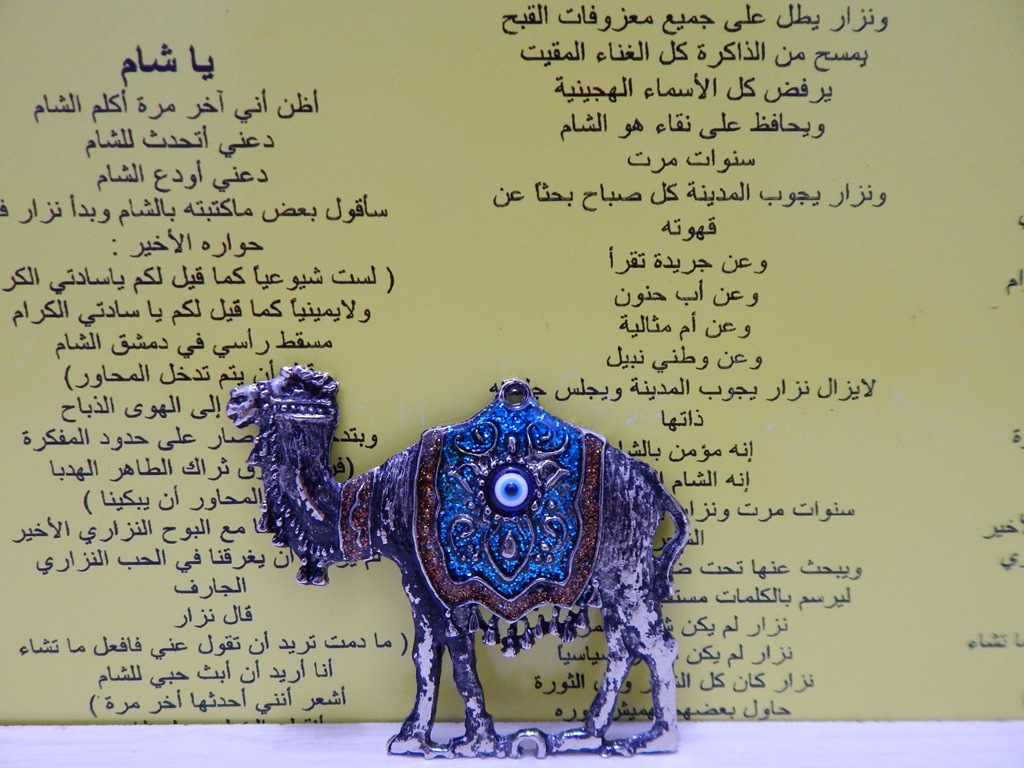 يا شام
أظن أني آخر مرة أكلم الشام
دعني أتحدث للشام
دعني أودع الشام
سأقول بعض ماكتبته بالشام وبدأ نزار
حواره الأخير :
( لست شيوعياً كما قيل لكم ياسادتي
ولايمينياً كما قيل لكم يا سادتي الكرام
مسقط رأسي في دمشق الشام
أن يتم تدخل المحاور)
إلى الهوى الذباح
على حدود المفكرة
ثراك الطاهر الهدبا
المحاور أن يبكينا )
مع البوح النزاري الأخير
أن يغرقنا في الحب النزاري
الجارف
قال نزار
( ما دمت تريد أن تقول عني فافعل ما تشاء
أنا أريد أن أبث حبي للشام
أشعر أنني أحدثها أخر مرة )
ونزار يطل على جميع معزوفات القبح
يمسح من الذاكرة كل الغناء المقيت
يرفض كل الأسماء الهجينية
ويحافظ على نقاء هو الشام
سنوات مرت
ونزار يجوب المدينة كل صباح بحثاً عن
قهوته
وعن جريدة تقرأ
وعن أب حنون
وعن أم مثالية
وعن وطني نبيل
لايزال نزار يجوب المدينة ويجلس
ذاتها
إنه مؤمن
إنه الشام
سنوات مرت
ويبحث عنها تحت
ليرسم بالكلمات
نزار لم يكن
نزار لم يكن
نزار كان كل الثورة
حاول بعضهم
تشاء